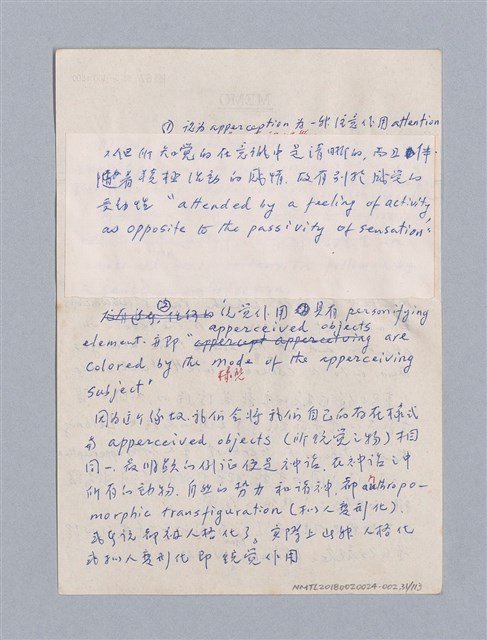 ① 認為 apperception 為一種注意作用 attention
不但所知覺的在意識中是清晰的, 而且伴
隨著積極活動的感情. 故有別於感覺的
受動性 “attended by a feeling of activity,
as opposite to the passivity of sensation”
② 統覺作用 具有 personifying
apperceived objects
element. 亦即 “appercept apperceiving are
colored by the mode of the apperceiving
subject”
因為這個緣故, 我們會將我們自己的存在樣式
與 apperceived objects (所統覺之物) 相
同一. 最明顯的例証便是神話. 在神話之中
所有的動物, 自然的勢力和諸神, 都 anthropo-
morphic transfiguration (擬人變形化).
或者說都被人格化了。實際上此種人格化
或擬人變形化即統覺作用
NMTL20180020024-002, 31/113